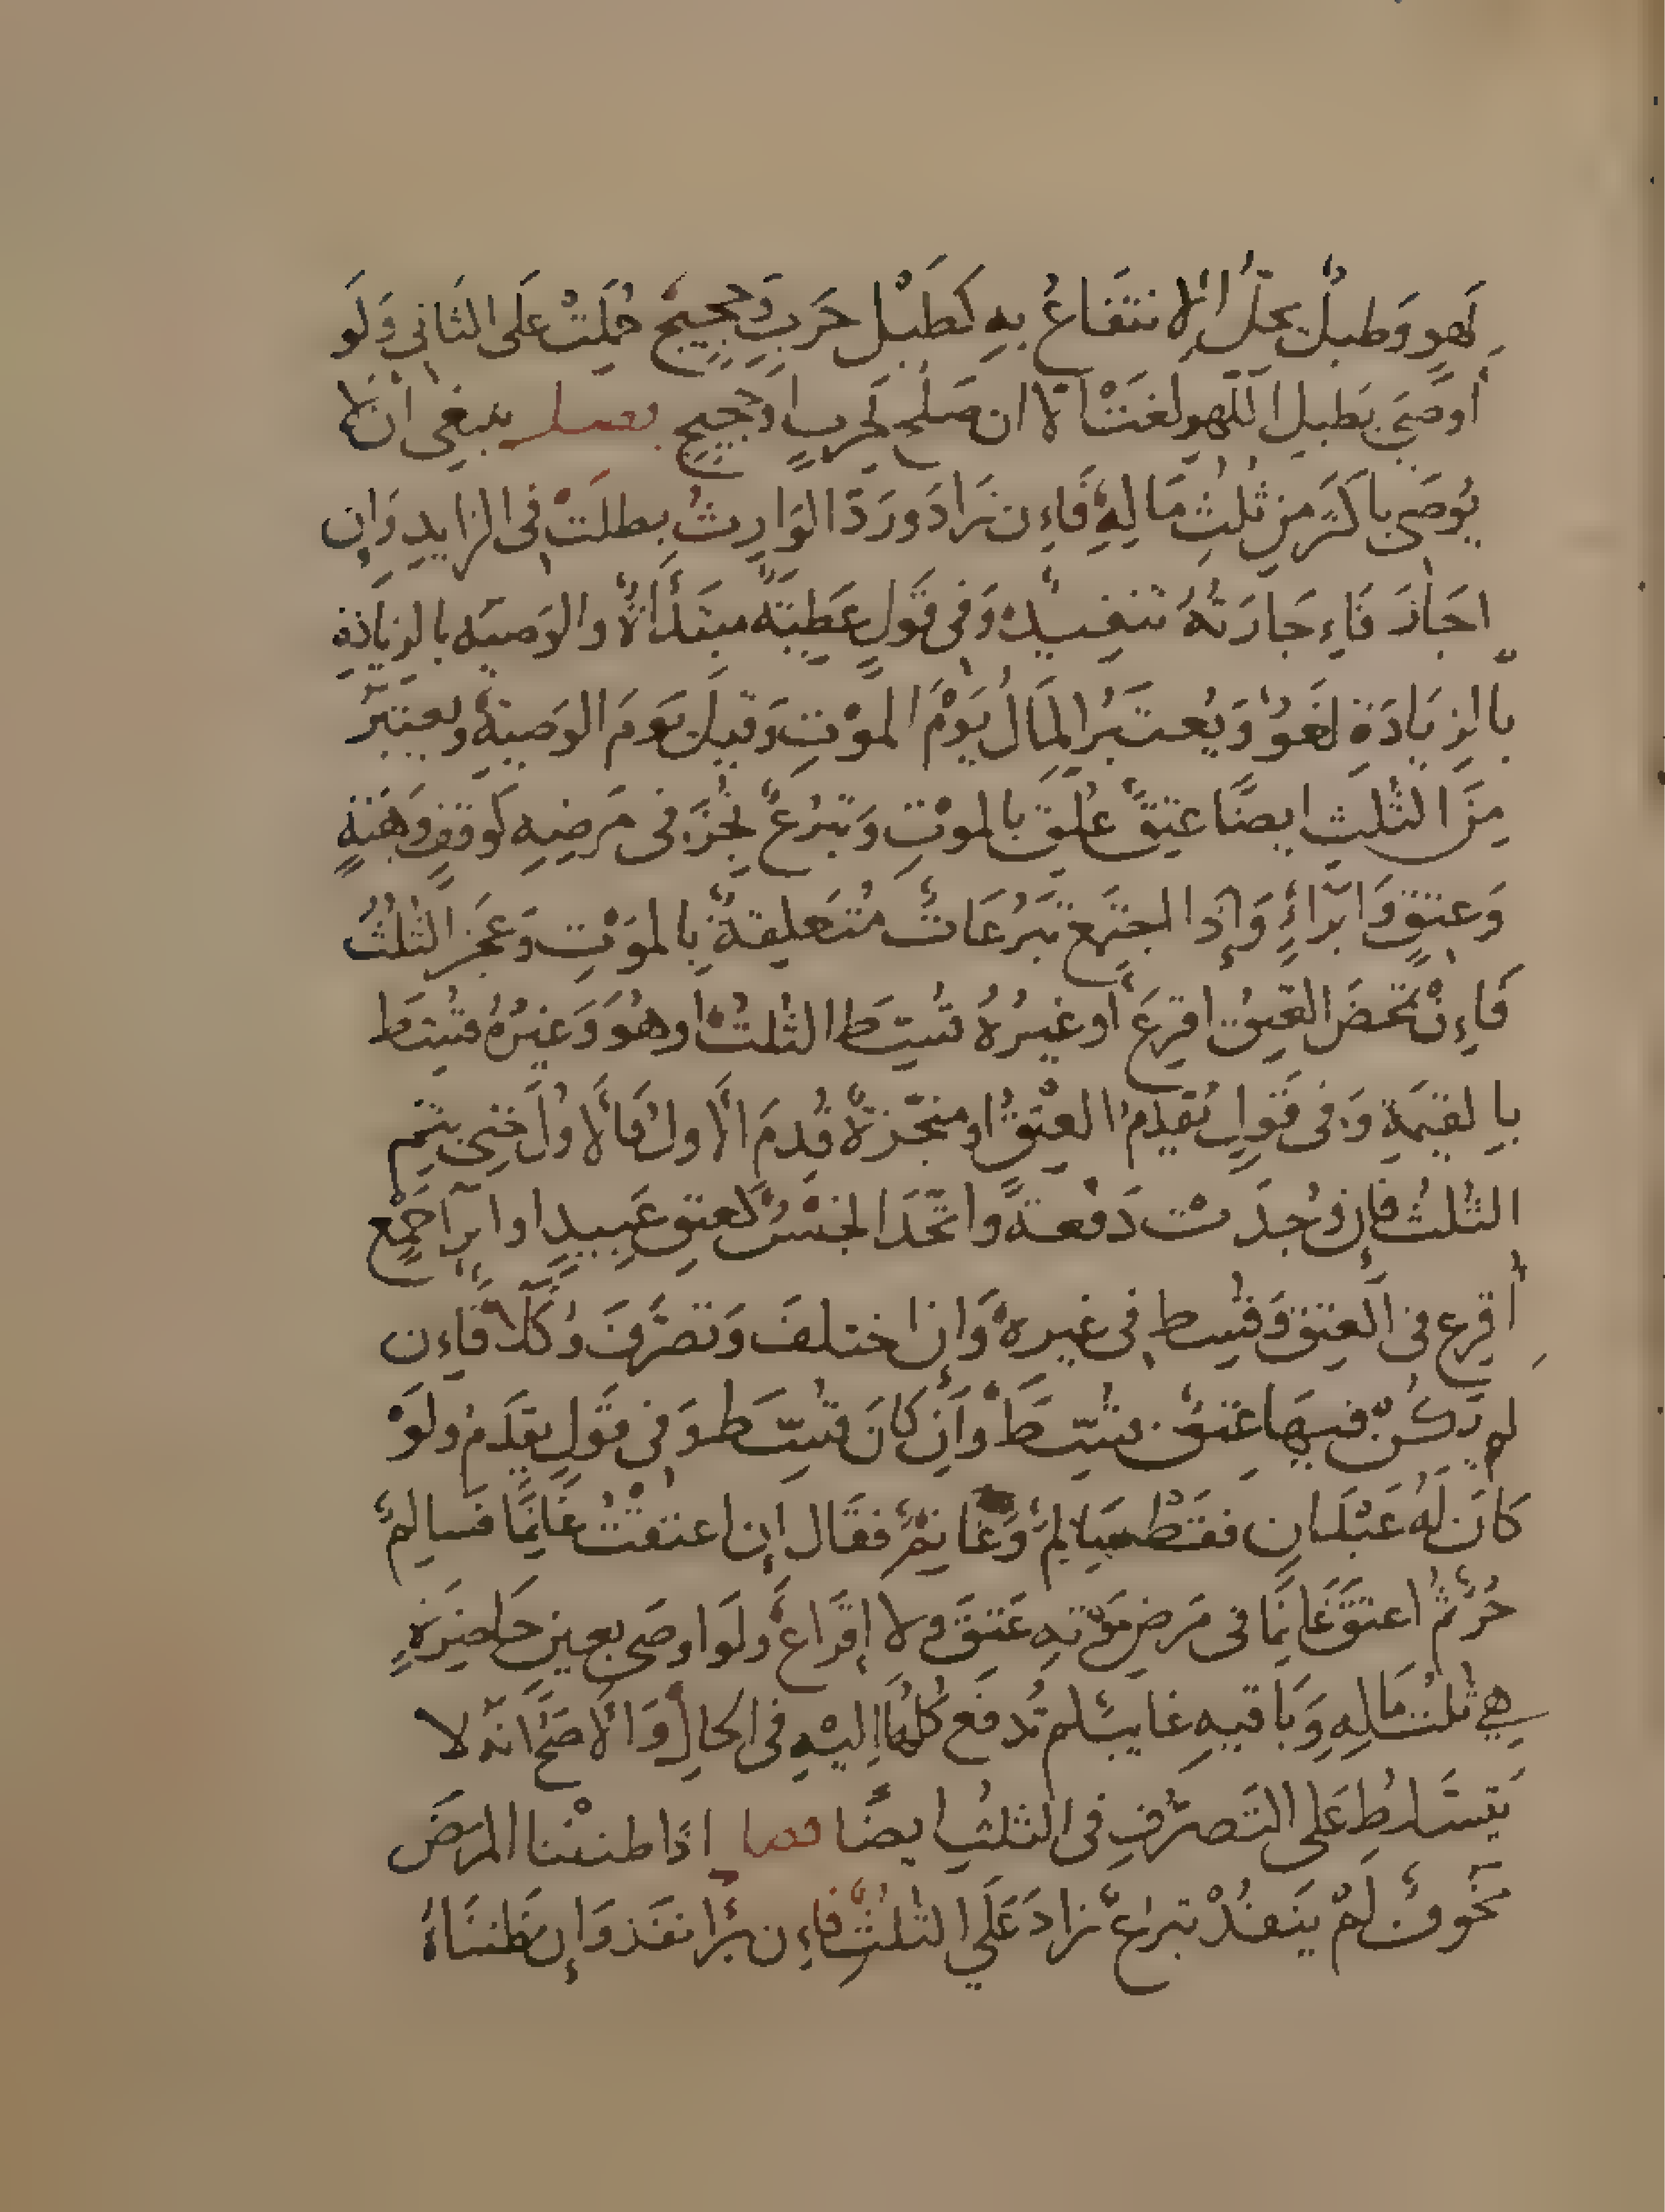 لَهوٍ وَطبلٌ يحلُّ الانتفَاعُ بِهِ كَطبْلِ حَربٍ وَحَجِيجٍ حُمِلَتْ عَلى الثَاني وَلَو
أوصَى بطبلِ اللهوِ لغَتْ الا ان صَلُح لحَربٍ اوحَجِيجٍ فصل ينبغي ان لا
يُوصَى باكثرَ مِن ثُلثِ مَالِهِ فَاءِن زَادَ وَرَدَّ الوَارِثُ بطلَتْ في الزايدِ وَإن
اجَازَ فَاءِجَازَتُهُ تنفيذٌ وَفي قَولٍ عَطِيَّةٌ مبتَدأةٌ والوَصيَه بالزيَادَةِ
بالزيَادَةِ لغَوٌ وَيُعتَبرُ المَالُ يَوْمَ الموْتِ وَقيلَ يَومَ الوَصيَّةِ وَيعتبَرُ
مِنَ الثلثِ ايضًا عتقٌ عُلِّقَ بالموتِ وَتبرُعٌ نُجِّزَ في مَرضِهِ كَوقفٍ وَهبَةٍ
وَعتقٍ وَابرَاءٍ وَإذا اجتَمع تبَرُعَاتٌ مُتَعلِقةٌ بالموَتِ وَعَجَز الثلثُ
فَاءِنْ تمَحضَ العِتقُ اقرِعَ أو غيرُهُ قُسِّطَ الثلثُ اوهُوَ وَغيرُهُ قُسِّطَ
بالقيمَةِ وَفي قَولٍ يُقدَمُ العِتقُ اومنجّزةٌ قُدِمَ الأولُ فَالأولُ حَتى يتِم
الثلثُ فإن وُجدَتْ دَفعةً واتّحَدَ الجنْسُ كعِتقِ عَبِيدٍ اوابرآ جَمْع
أقرِع في العِتقِ وَقُسِط في غيرِهِ وَإن اختلفَ وَتصَرَّفَ وُكَلَا فَاءِن
لم يَكُنْ فيهَا عِتقٌ قُسِّطَ وَإن كانَ قُسِّطَ وَفي قَولٍ يقدَمُ وَلوْ
كانَ لَهُ عَبْدَانِ فقَطْ سَالِمٌ وَغَانِمٌ فقَال إن اعتقتُ غَانِمًا فسَالِمٌ
حُرٌ ثُم اعتقَ غَانمًا في مَرضِ مَوْتهِ عَتقَ ولا إقرَاعَ وَلَو اوصَى بعينٍ حَاضِرَةٍ
هِي ثلثُ مَالِهِ وَبَاقيهِ غايبٌ لم تُدفَع كُلهَا اليْهِ في الحَالِ وَالأصَحُ انهُ لا
يتسَلطُ عَلى التَصرُّفِ في الثلثِ ايضًا فصل اذَا ظننْنا المرَضَ
مخُوفًا لَمْ يَنفُذْ تبرعٌ زادَ عَلَى الثلثِ فَاءِن بَرَا نفَذ وَإن ظَننَاهُ